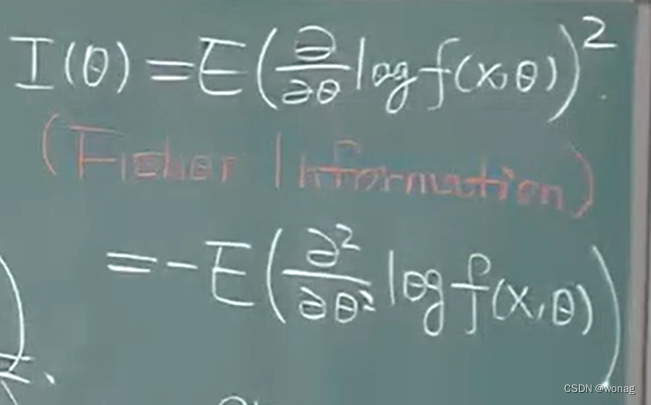 I(θ) = E(∂/∂θ log f(x,θ))²
(Fisher Information)
= -E(∂²/∂θ² log f(x,θ))
CSDN @wonag